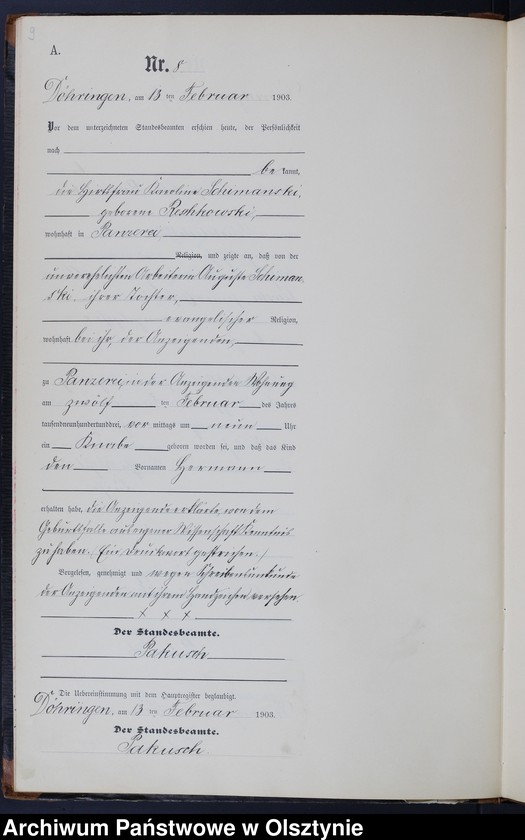 A.
Nr. 8
Döhringen, am 13 ten Februar 1903.
Vor dem unterzeichneten Standesbeamten erschien heute, der Persönlichkeit
nach
be kannt,
die Hirtfrau Karoline Schimanski,
geborene Reshkowski,
wohnhaft in Panzerei
Religion, und zeigte an, daß von der
unverehelichten Arbeiterin Auguste Schiman
ski, ihrer Tochter,
evangelischer Religion,
wohnhaft bei ihr, der Anzeigenden,
zu Panzerei, in der Anzeigenden Wohnung
am zwölf ten Februar des Jahres
tausendneunhundertunddrei, vor mittags um neun Uhr
ein Knabe geboren worden sei, und daß das Kind
den Vornamen Hermann
erhalten habe, die Anzeigende erklärte, von dem
Geburtsfalle aus eigener Wissenschaft Kenntnis
zu haben. (Ein Druckwort gestrichen.)
Vorgelesen, genehmigt und wegen Schreibensunkunde
der Anzeigenden mit ihrem Handzeichen versehen
x x x
Der Standesbeamte.
Pakusch
Die Uebereinstimmung mit dem Hauptregister beglaubigt.
Döhringen, am 13 ten Februar 1903.
Der Standesbeamte.
Pakusch.
Archiwum Państwowe w Olsztynie